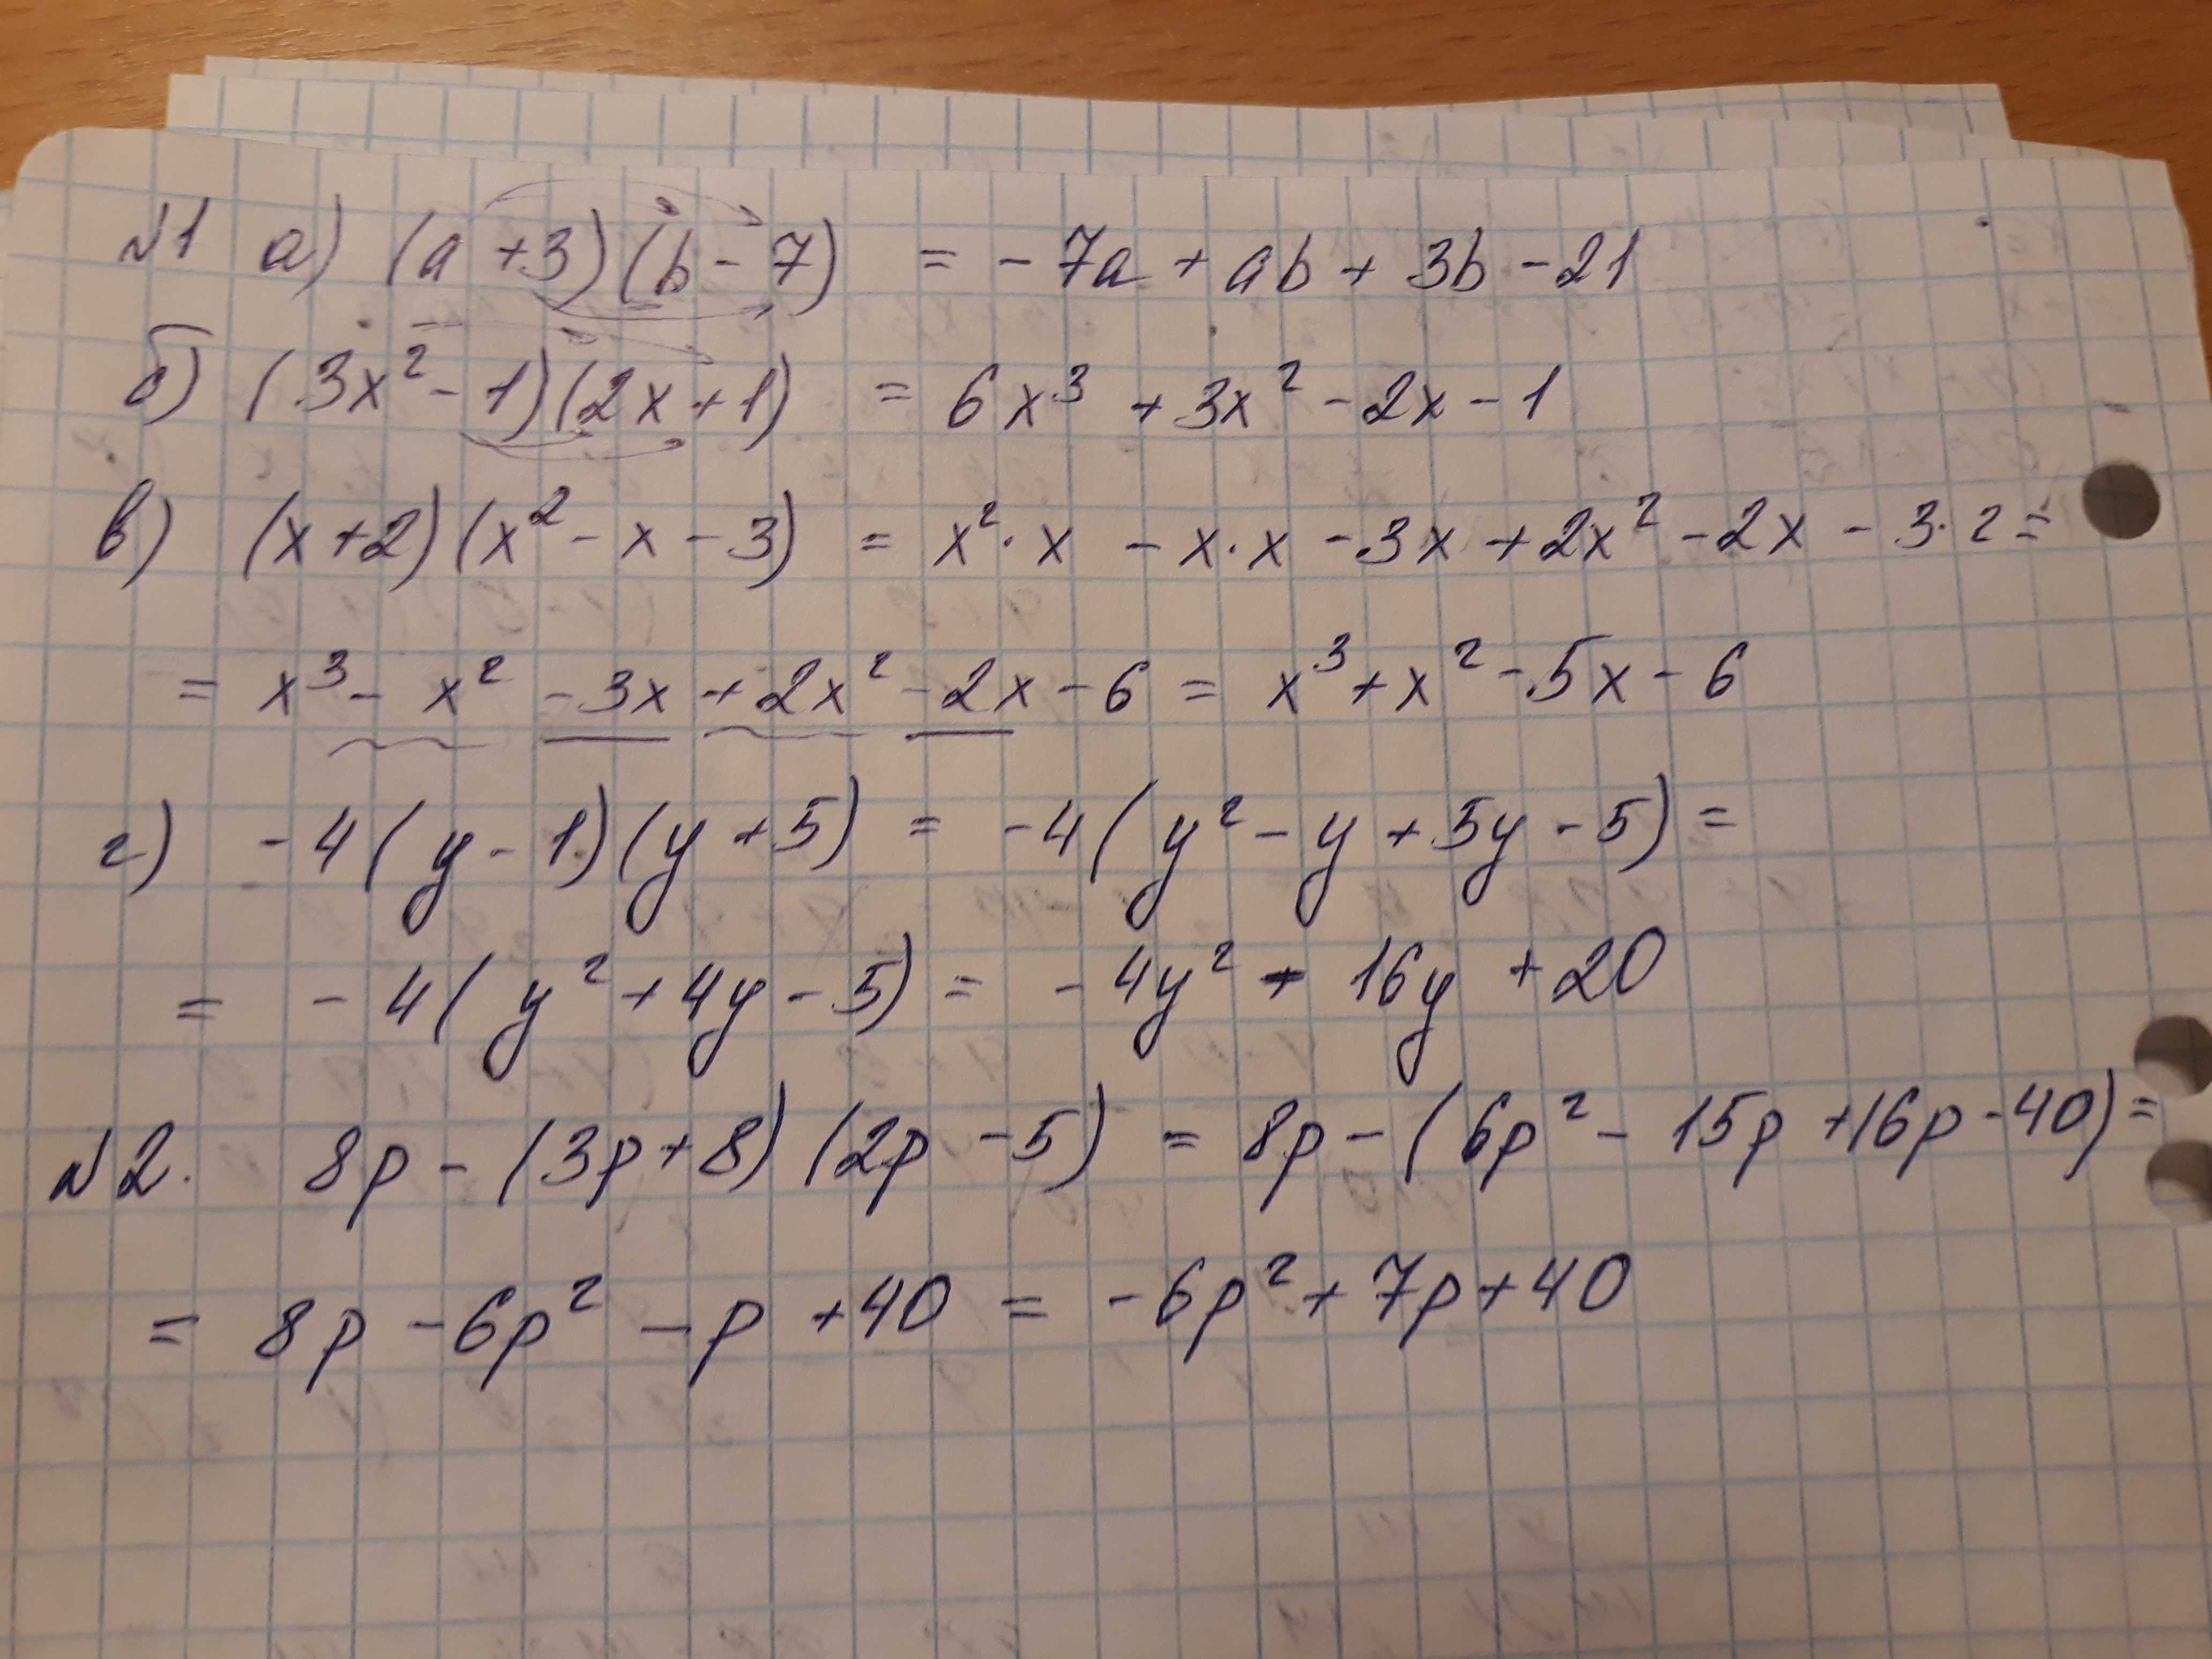 №1 а) (a + 3)(b - 7) = - 7a + ab + 3b - 21
б) (3x² - 1)(2x + 1) = 6x³ + 3x² - 2x - 1
в) (x + 2)(x² - x - 3) = x² · x - x · x - 3x + 2x² - 2x - 3 · 2 =
= x³ - x² - 3x + 2x² - 2x - 6 = x³ + x² - 5x - 6
г) - 4(y - 1)(y + 5) = - 4(y² - y + 5y - 5) =
= - 4(y² + 4y - 5) = - 4y² - 16y + 20
№2. 8p - (3p + 8)(2p - 5) = 8p - (6p² - 15p + 16p - 40) =
= 8p - 6p² - p + 40 = - 6p² + 7p + 40